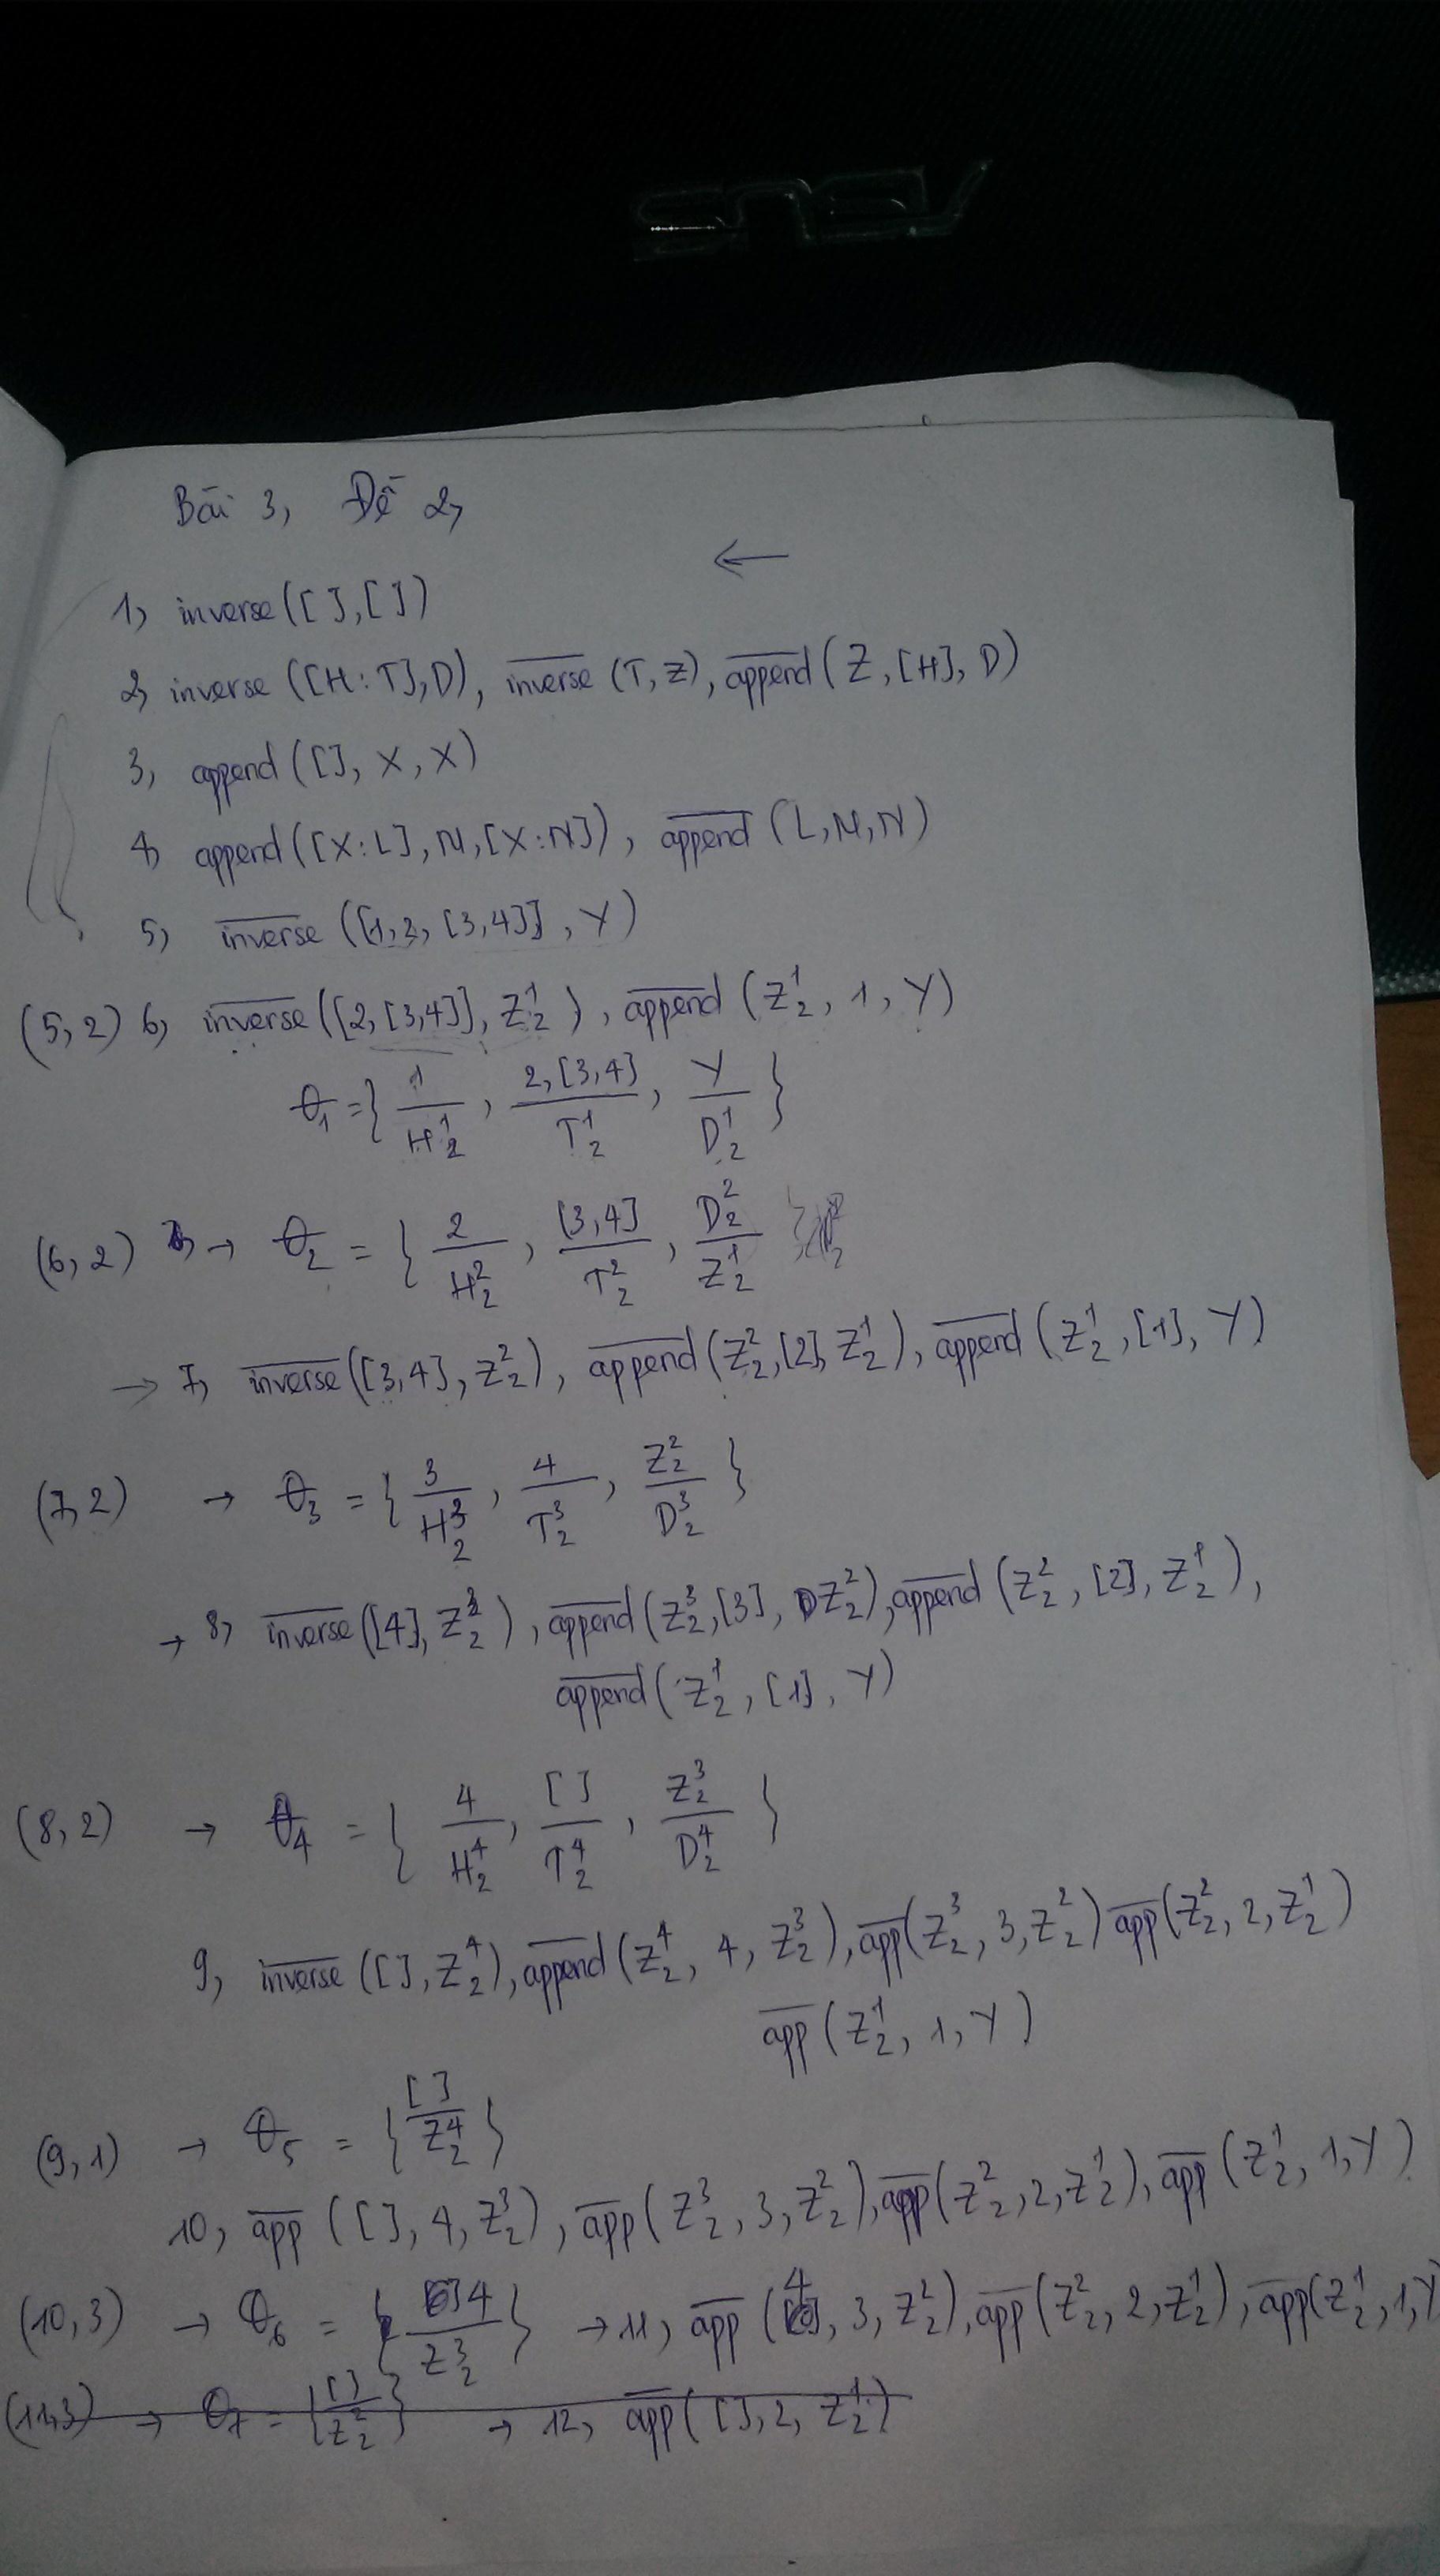 ASUS
Bài 3, Đề 2,
←
1, inverse([ ],[ ])
2, inverse ([H:T],D), \overline{inverse} (T,Z), \overline{append} (Z,[H],D)
3, append([], X, X)
4, append([X:L],M,[X:N]), \overline{append} (L,M,N)
5, \overline{inverse} ([1,2,[3,4]], Y)
(5,2) 6, \overline{inverse}([2,[3,4]], Z_2^1), \overline{append} (Z_2^1, 1, Y)
θ_1 = { 1/H_2^1, 2,[3,4]/T_2^1, Y/D_2^1 }
(6,2) → θ_2 = { 2/H_2^2, [3,4]/T_2^2, D_2^2/Z_2^1 }
→ 7, \overline{inverse}([3,4],Z_2^2), \overline{append}(Z_2^2,[2],Z_2^1), \overline{append}(Z_2^1,[1],Y)
(7,2) → θ_3 = { 3/H_2^3, 4/T_2^3, Z_2^2/D_2^3 }
→ 8, \overline{inverse}([4],Z_2^3), \overline{append}(Z_2^3,[3], Z_2^2), \overline{append}(Z_2^2,[2],Z_2^1),
\overline{append}(Z_2^1,[1],Y)
(8,2) → θ_4 = { 4/H_2^4, [ ]/T_2^4, Z_2^3/D_2^4 }
9, \overline{inverse}([ ],Z_2^4), \overline{append}(Z_2^4, 4, Z_2^3), \overline{app}(Z_2^3, 3, Z_2^2) \overline{app}(Z_2^2, 2, Z_2^1)
\overline{app}(Z_2^1, 1, Y)
(9,1) → θ_5 = { [ ]/Z_2^4 }
10, \overline{app}([ ], 4, Z_2^3), \overline{app}(Z_2^3, 3, Z_2^2), \overline{app}(Z_2^2, 2, Z_2^1), \overline{app}(Z_2^1, 1, Y)
(10,3) → θ_6 = { 4/Z_2^3 } → 11, \overline{app}(4, 3, Z_2^2), \overline{app}(Z_2^2, 2, Z_2^1), \overline{app}(Z_2^1, 1, Y)
(11,3) → θ_7 = { [ ]/Z_2^2 } → 12, \overline{app}([ ], 2, Z_2^1)